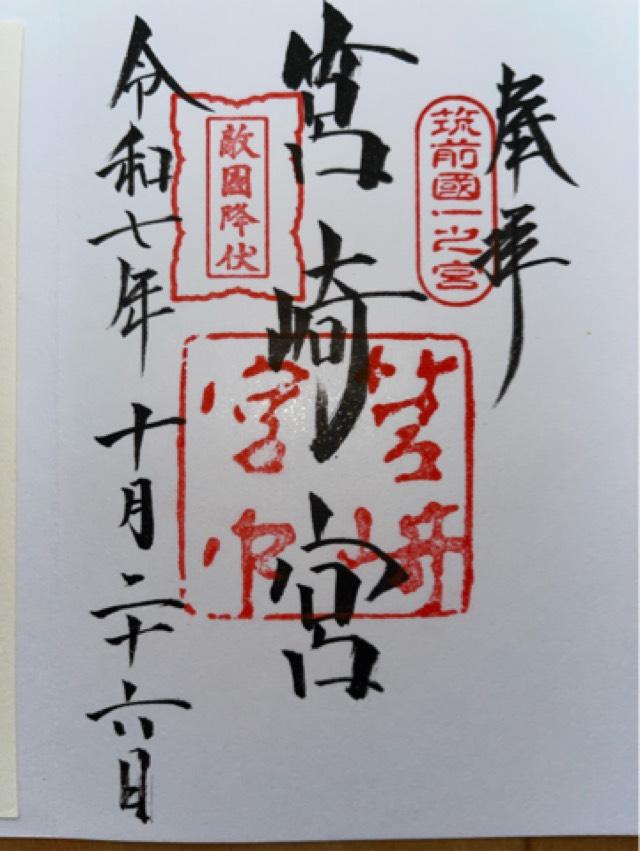 奉拝
筑前國一之宮
筥崎宮
筥崎
宮印
敵國降伏
令和七年十月二十六日